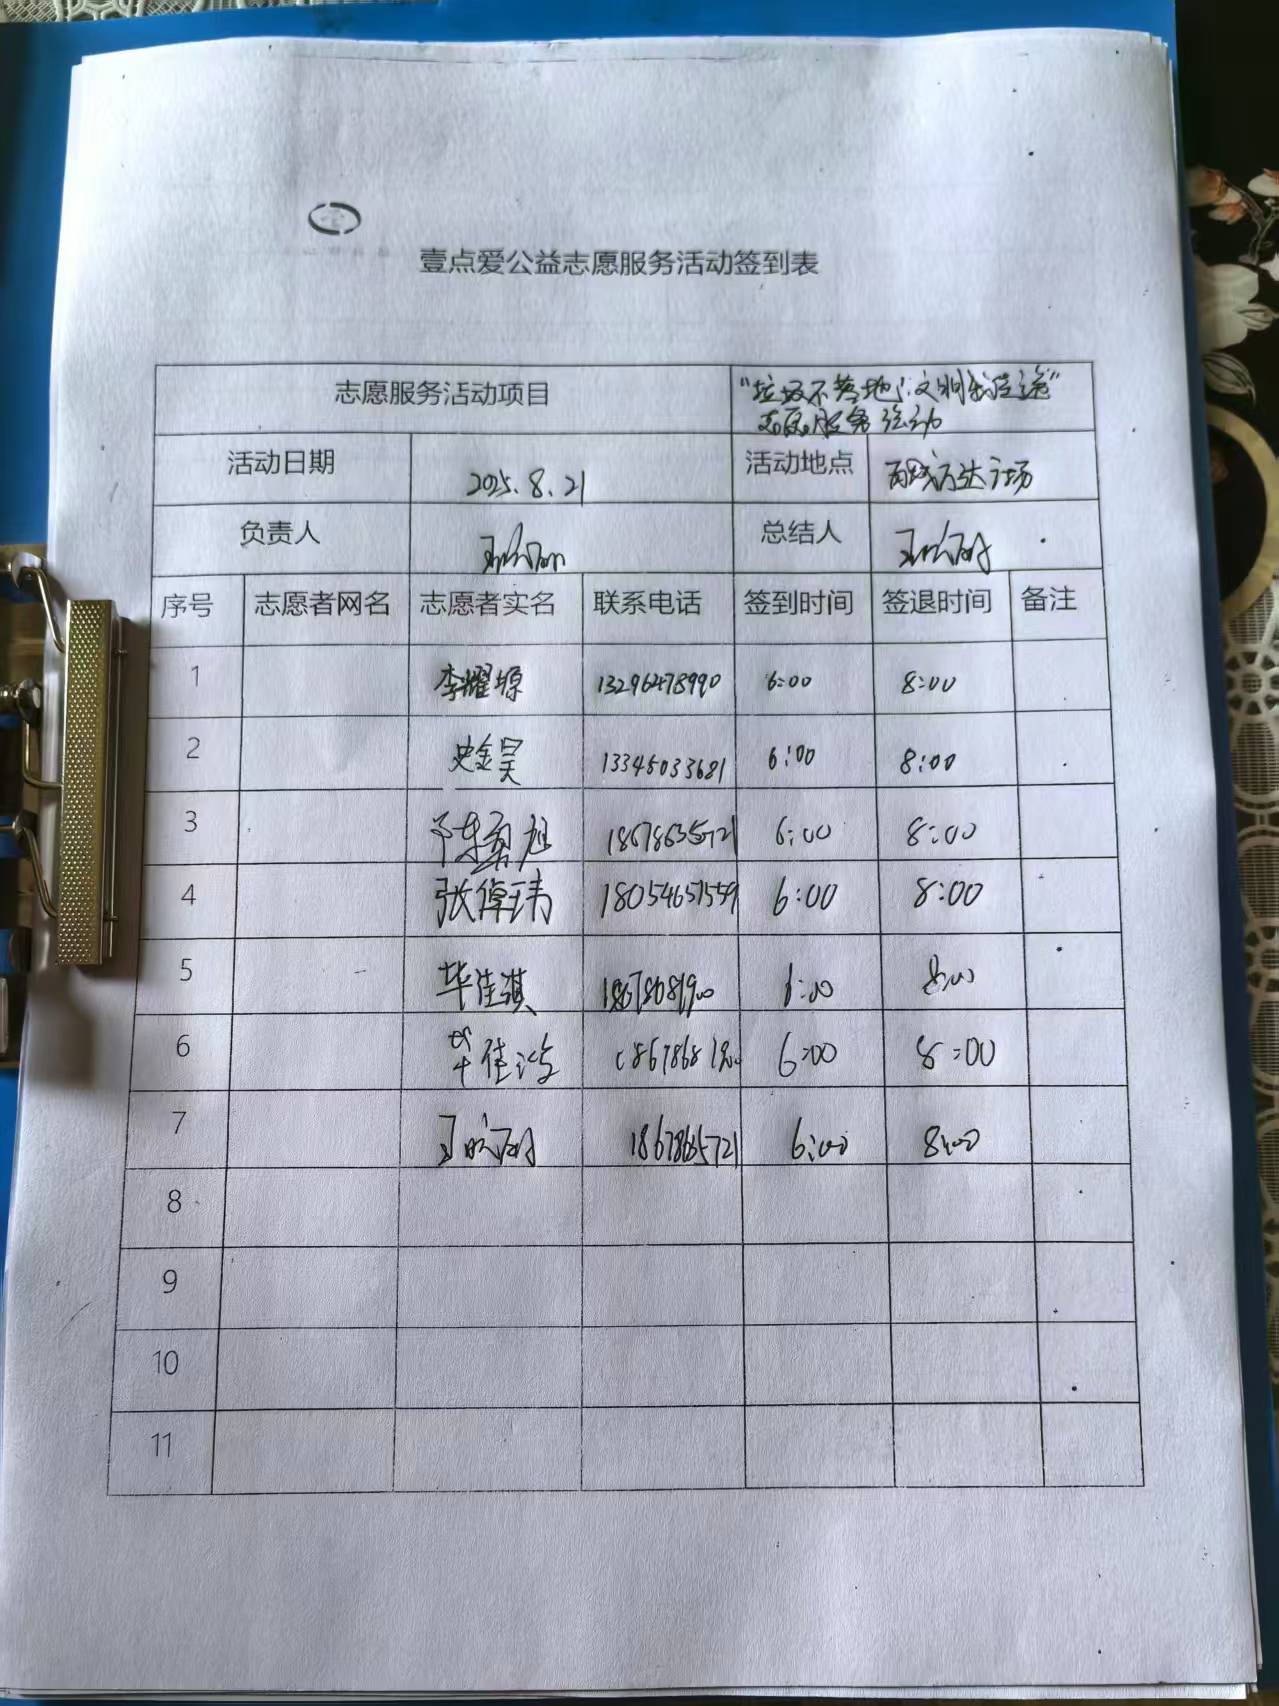 壹点爱公益志愿服务活动签到表
志愿服务活动项目 "垃圾不落地,文明我传递"
志愿服务活动
活动日期 2025.8.21 活动地点 西城万达广场
负责人 总结人
序号 志愿者网名 志愿者实名 联系电话 签到时间 签退时间 备注
1 李耀塬 13296478990 6:00 8:00
2 史金昊 13345033681 6:00 8:00
3 18678635721 6:00 8:00
4 张倬玮 18054651559 6:00 8:00
5 毕佳淇 6:00 8:00
6 毕佳 6:00 8:00
7 6:00 8:00
8
9
10
11